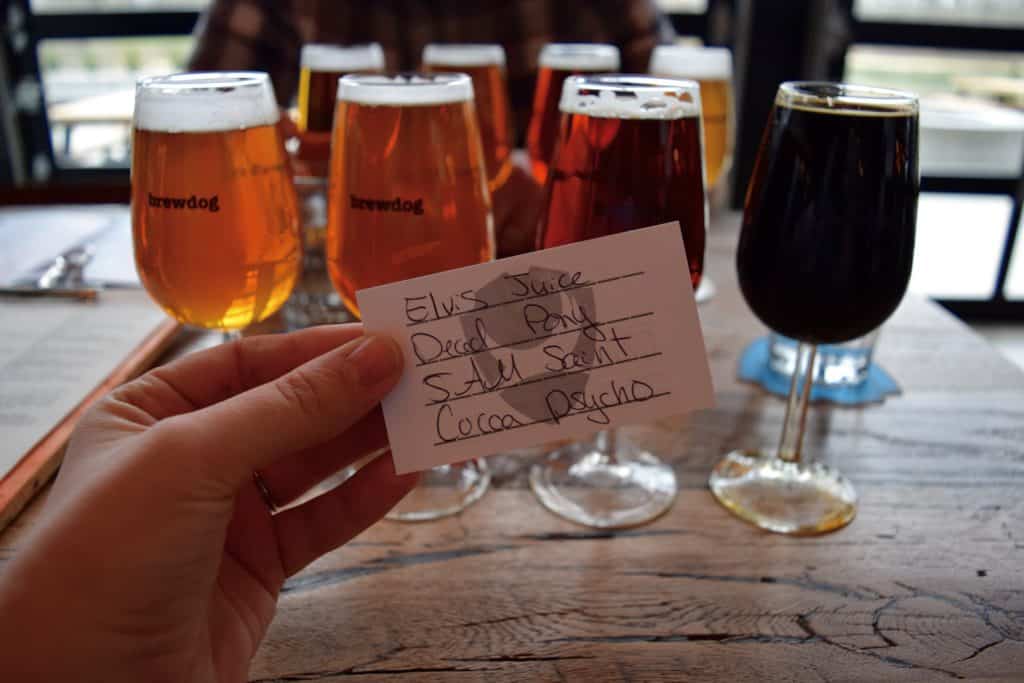 brewdog
brewdog
Elvis Juice
Dead Pony
SAM Saint
Cocoa Psycho